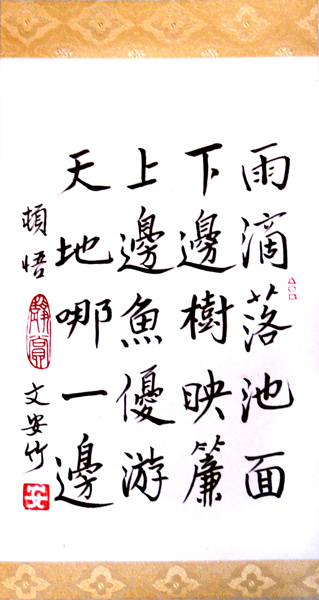 雨滴落池面
下邊樹映簾
上邊魚優游
天地哪一邊
頓悟
文安竹
安